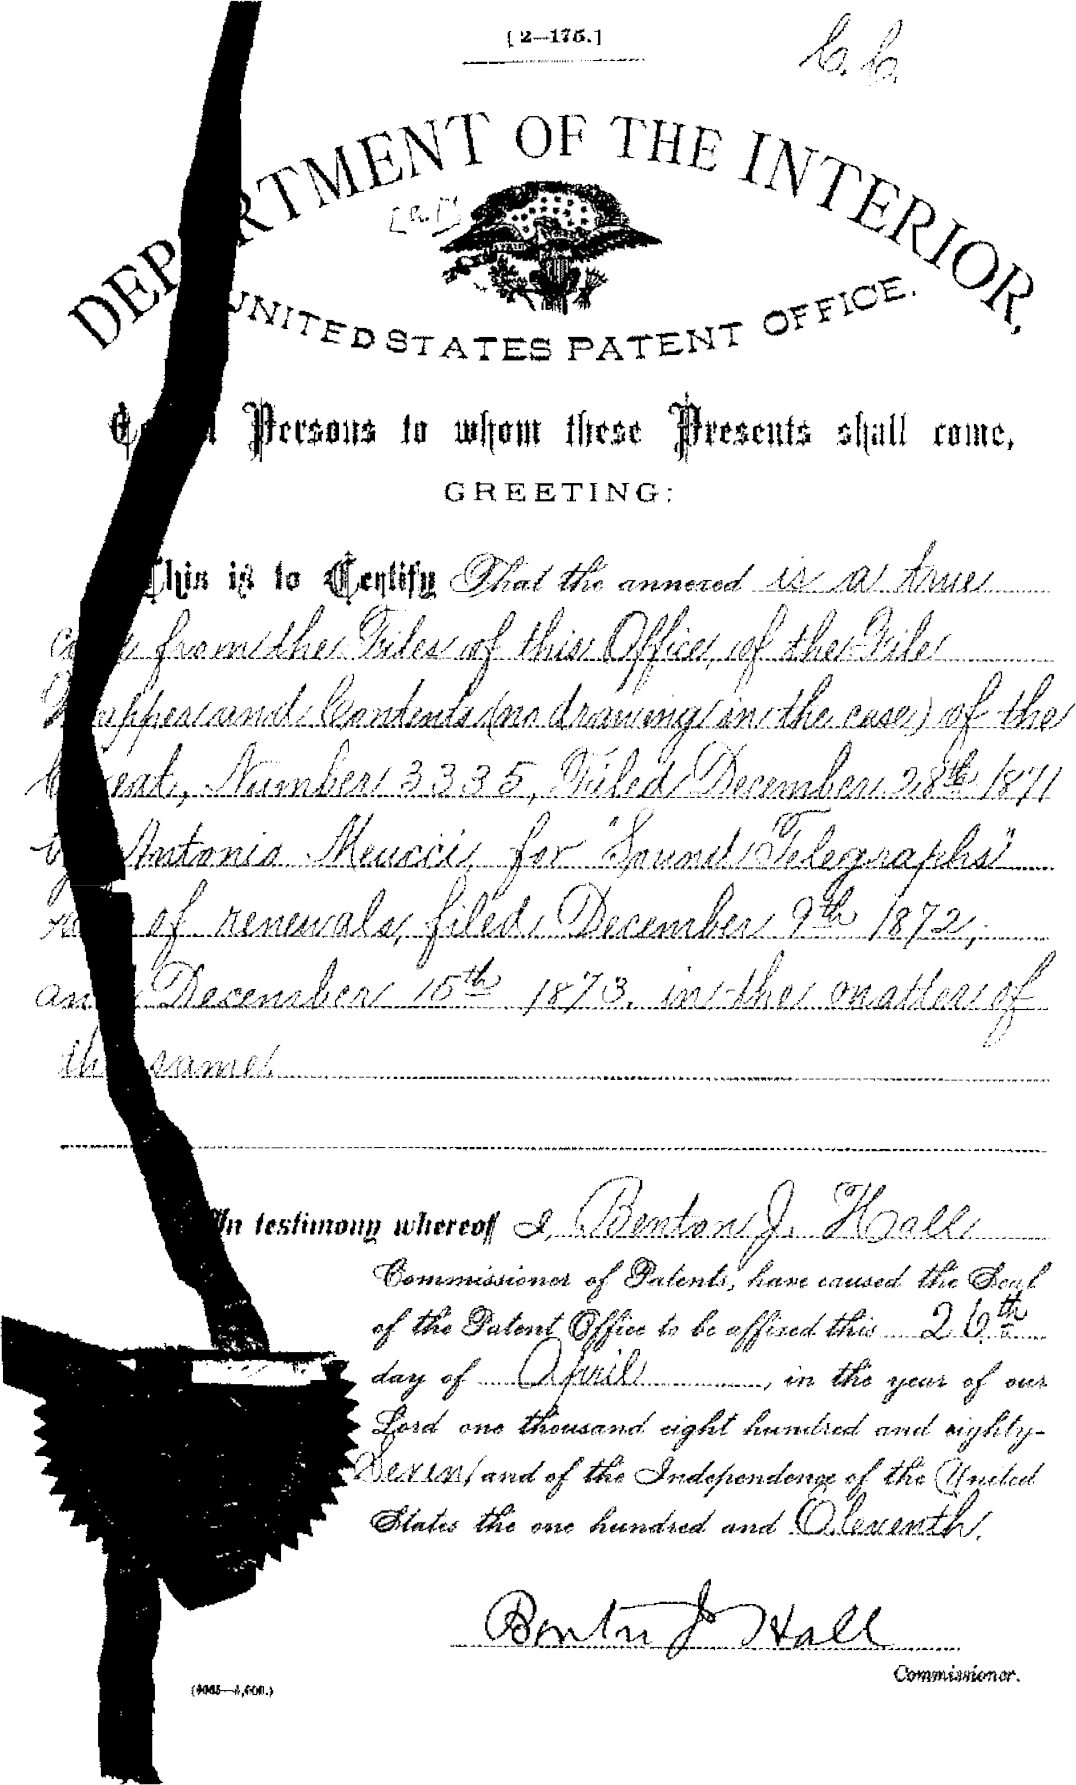 [2—175.]
DEPARTMENT OF THE INTERIOR,
UNITED STATES PATENT OFFICE.
Persons to whom these Presents shall come,
GREETING:
This is to Certify That the annexed is a true
from the Files of this Office, of the File
Wrapper and Contents (no drawing in the case) of the
Caveat, Number 3335, Filed December 28th 1871
by Antonio Meucci, for "Sound Telegraphs"
of renewals, filed December 9th 1872,
and December 15th 1873. in the matter of
the same.
In testimony whereof I, Benton J. Hall
Commissioner of Patents, have caused the Seal
of the Patent Office to be affixed this 26th
day of April, in the year of our
Lord one thousand eight hundred and eighty-
Seven and of the Independence of the United
States the one hundred and Eleventh.
Benton J Hall
Commissioner.